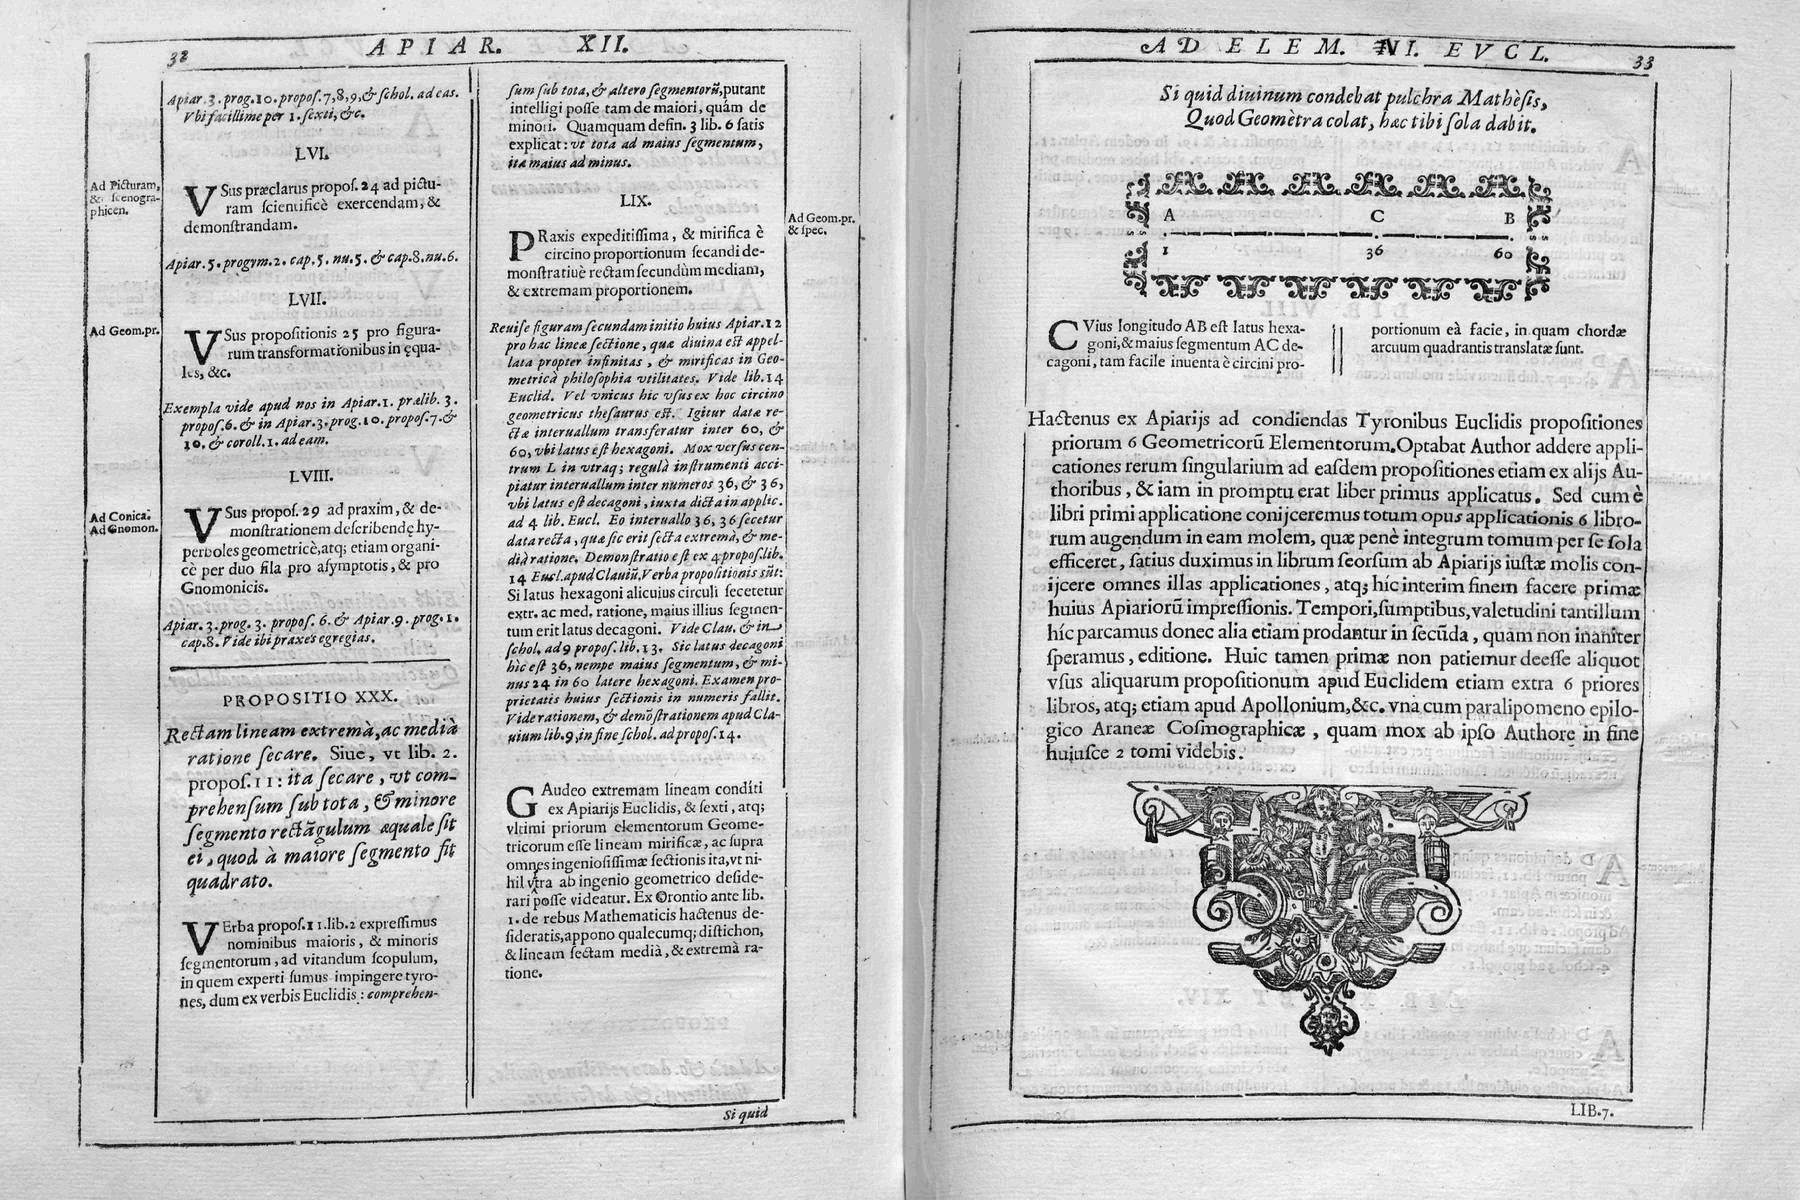 32 APIAR. XII.
Apiar. 3. prog. 10. propos. 7, 8, 9, & schol. ad eas.
Vbi facillime per 1. sexti, &c.
LVI.
Ad Picturam,
& scenogra-
phicen.
VSus præclarus propos. 24 ad pictu-
ram scientificè exercendam, &
demonstrandam.
Apiar. 5. progym. 2. cap. 5. nu. 5. & cap. 8. nu. 6.
LVII.
Ad Geom. pr.
VSus propositionis 25 pro figura-
rum transformationibus in ęqua-
les, &c.
Exempla vide apud nos in Apiar. 1. prælib. 3.
propos. 6. & in Apiar. 3. prog. 10. propos. 7. &
10. & coroll. 1. ad eam.
LVIII.
Ad Conica.
Ad Gnomon.
VSus propos. 29 ad praxim, & de-
monstrationem describendę hy-
perboles geometricè, atq; etiam organi-
cè per duo fila pro asymptotis, & pro
Gnomonicis.
Apiar. 3. prog. 3. propos. 6. & Apiar. 9. prog. 1.
cap. 8. Vide ibi praxes egregias.
PROPOSITIO XXX.
Rectam lineam extremà, ac medià
ratione secare. Siue, vt lib. 2.
propos. 11: ita secare, vt com-
prehensum sub tota, & minore
segmento rectãgulum æquale sit
ei, quod à maiore segmento fit
quadrato.
VErba propos. 11. lib. 2 expressimus
nominibus maioris, & minoris
segmentorum, ad vitandum scopulum,
in quem experti sumus impingere tyro-
nes, dum ex verbis Euclidis: comprehen-
sum sub tota, & altero segmentorũ, putant
intelligi posse tam de maiori, quám de
minori. Quamquam defin. 3 lib. 6 satis
explicat: vt tota ad maius segmentum,
ita maius ad minus.
LIX.
Ad Geom. pr.
& spec.
PRaxis expeditissima, & mirifica è
circino proportionum secandi de-
monstratiuè rectam secundùm mediam,
& extremam proportionem.
Reuise figuram secundam initio huius Apiar. 12
pro hac lineæ sectione, quæ diuina est appel-
lata propter infinitas, & mirificas in Geo-
metricà philosophia vtilitates. Vide lib. 14
Euclid. Vel vnicus hic vsus ex hoc circino
geometricus thesaurus est. Igitur datæ re-
ctæ interuallum transferatur inter 60, &
60, vbi latus est hexagoni. Mox versus cen-
trum L in vtraq; regulà instrumenti acci-
piatur interuallum inter numeros 36, & 36,
vbi latus est decagoni, iuxta dicta in applic.
ad 4 lib. Eucl. Eo interuallo 36, 36 secetur
data recta, quæ sic erit secta extremà, & me-
dià ratione. Demonstratio est ex 4 propos. lib.
14 Eucl. apud Clauiũ. Verba propositionis sũt:
Si latus hexagoni alicuius circuli secetetur
extr. ac med, ratione, maius illius segmen-
tum erit latus decagoni. Vide Clau. & in
schol. ad 9 propos. lib. 13. Sic latus decagoni
hic est 36, nempe maius segmentum, & mi-
nus 24 in 60 latere hexagoni. Examen pro-
prietatis huius sectionis in numeris fallit.
Vide rationem, & demõstrationem apud Cla-
uium lib. 9, in fine schol. ad propos. 14.
GAudeo extremam lineam condíti
ex Apiarijs Euclidis, & sexti, atq;
vltimi priorum elementorum Geome-
tricorum esse lineam mirificæ, ac supra
omnes ingeniosissimæ sectionis ita, vt ni-
hil vltra ab ingenio geometrico deside-
rari posse videatur. Ex Orontio ante lib.
1. de rebus Mathematicis hactenus de-
sideratis, appono qualecumq; distichon,
& lineam sectam medià, & extremà ra-
tione.
Si quid
AD ELEM. VI. EVCL. 33
Si quid diuinum condebat pulchra Mathèsis,
Quod Geomètra colat, hæc tibi sola dabit.
A C B
1 36 60
CVius longitudo AB est latus hexa-
goni, & maius segmentum AC de-
cagoni, tam facile inuenta è circini pro-
portionum eà facie, in quam chordæ
arcuum quadrantis translatæ sunt.
Hactenus ex Apiarijs ad condiendas Tyronibus Euclidis propositiones
priorum 6 Geometricorũ Elementorum. Optabat Author addere appli-
cationes rerum singularium ad easdem propositiones etiam ex alijs Au-
thoribus, & iam in promptu erat liber primus applicatus. Sed cum è
libri primi applicatione conijceremus totum opus applicationis 6 libro-
rum augendum in eam molem, quæ penè integrum tomum per se sola
efficeret, satius duximus in librum seorsum ab Apiarijs iustæ molis con-
ijcere omnes illas applicationes, atq; híc interim finem facere primæ
huius Apiariorũ impressionis. Tempori, sumptibus, valetudini tantillum
híc parcamus donec alia etiam prodantur in secũda, quam non inaniter
speramus, editione. Huic tamen primæ non patiemur deesse aliquot
vsus aliquarum propositionum apud Euclidem etiam extra 6 priores
libros, atq; etiam apud Apollonium, &c. vna cum paralipomeno epilo-
gico Araneæ Cosmographicæ, quam mox ab ipso Authore in fine
huiusce 2 tomi videbis.
LIB. 7.